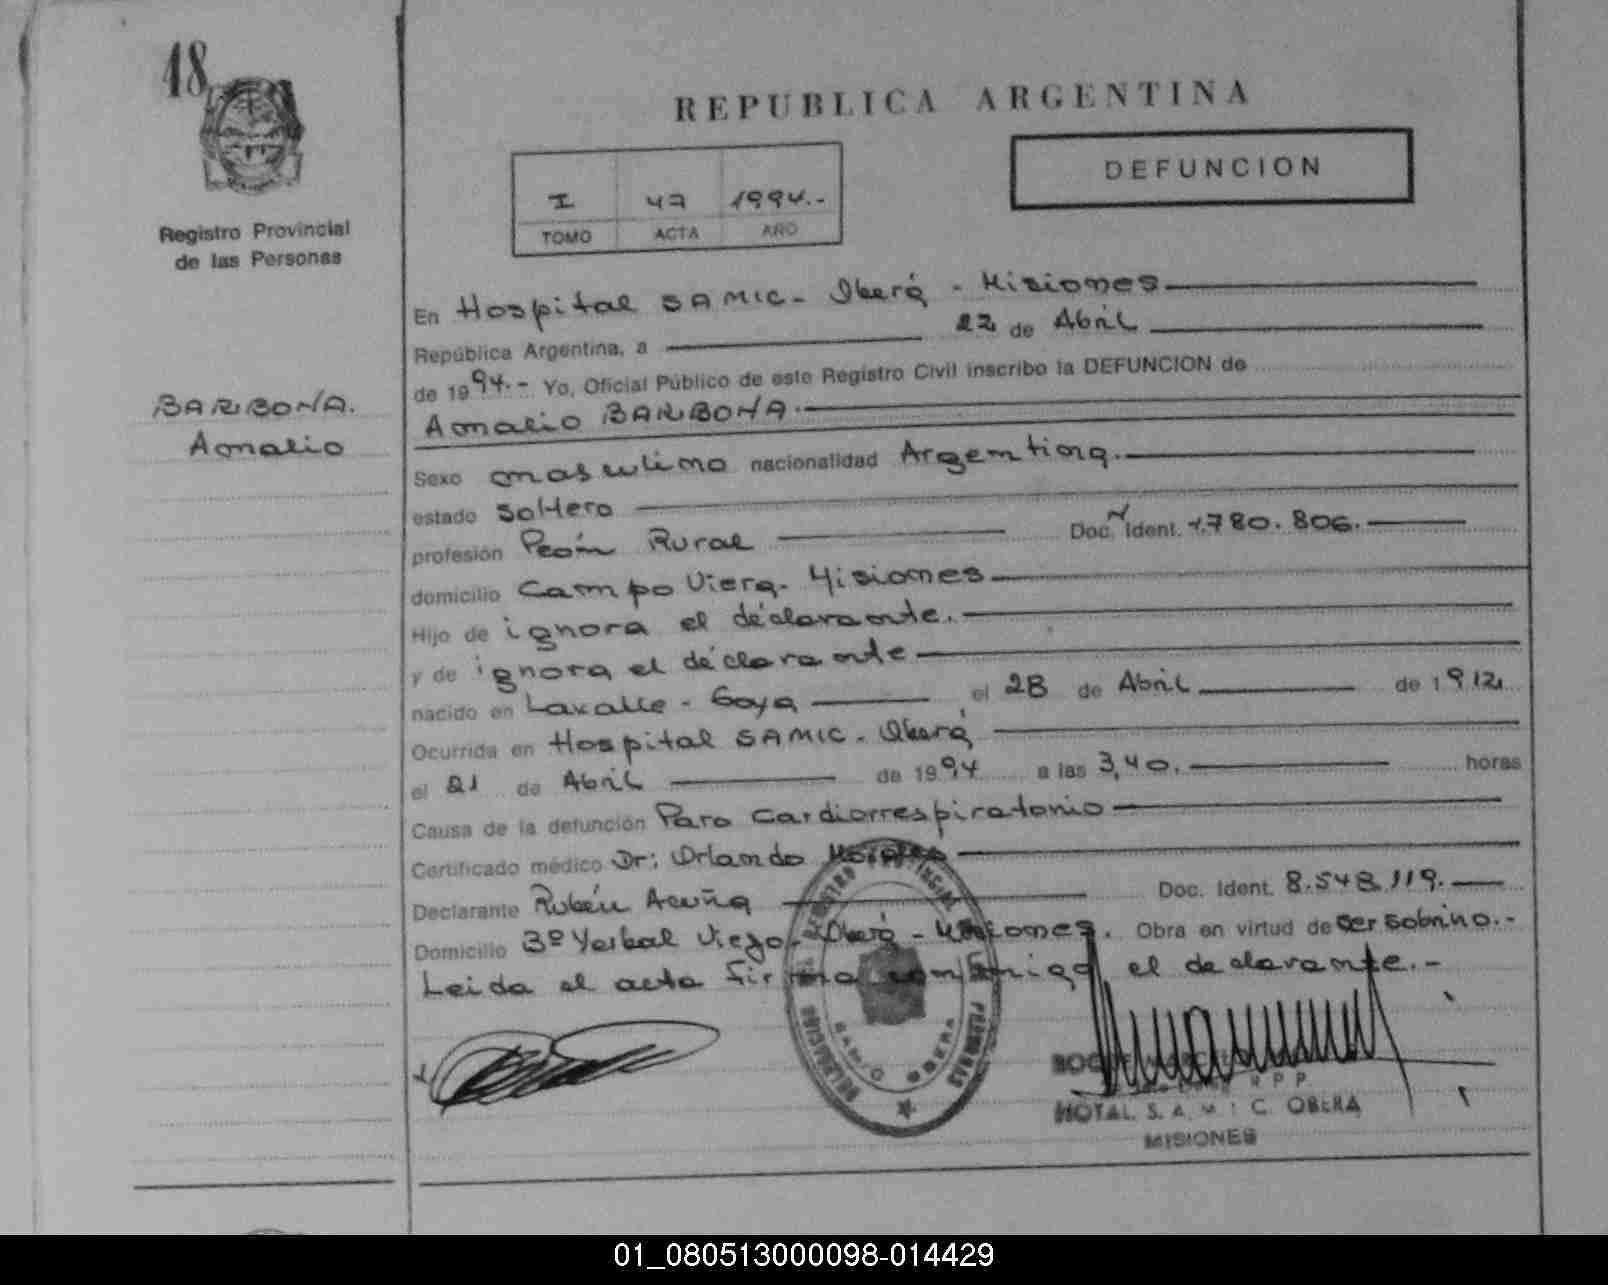 18
REPUBLICA ARGENTINA
DEFUNCION
I 47 1994.-
TOMO ACTA AÑO
Registro Provincial
de las Personas
BARBONA.
Amalio
En Hospital SAMIC - Oberá - Misiones
República Argentina, a 22 de Abril
de 1994.- Yo, Oficial Público de este Registro Civil inscribo la DEFUNCION de
Amalio BARBONA.
Sexo masculino nacionalidad Argentina.
estado soltero
profesión Peón Rural Doc. N Ident. 1.780.806.
domicilio Campo Viera - Misiones
Hijo de ignora el declarante.
y de ignora el declarante
nacido en Lavalle - Goya el 28 de Abril de 1912
Ocurrida en Hospital SAMIC - Oberá
el 21 de Abril de 1994 a las 3,40. horas
Causa de la defunción Paro Cardiorrespiratorio
Certificado médico Dr: Orlando
Declarante Rubén Acuña Doc. Ident. 8.548.119.
Domicilio 3º Yerbal Viejo - Oberá - Misiones. Obra en virtud de ser sobrino.-
Leida el acta firma conmigo el declarante.-
REGISTRO PROVINCIAL DE LAS PERSONAS
DELEGACION
SAMIC OBERA
R P P
HOTAL. S. A. M. I C. OBERA
MISIONES
01_080513000098-014429